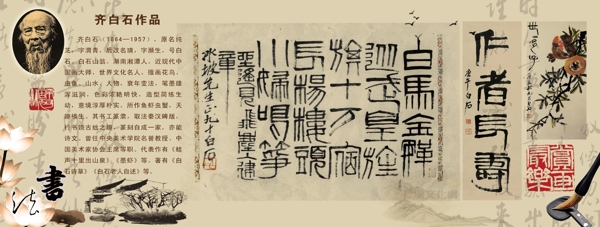 齐白石作品
齐白石（1864—1957），原名纯
芝，字渭青，后改名璜，字濒生，号白
石、白石山翁，湖南湘潭人，近现代中
国画大师，世界文化名人，擅画花鸟、
虫鱼、山水、人物，衰年变法，笔墨雄
浑滋润，色彩浓艳明快，造型简练生
动，意境淳厚朴实。所作鱼虾虫蟹，天
趣横生。其书工篆隶，取法秦汉碑版，
行书饶古拙之趣，篆刻自成一家，亦能
诗文，曾任中央美术学院名誉教授、中
国美术家协会主席等职。代表作有《蛙
声十里出山泉》《墨虾》等。著有《白
石诗草》《白石老人自述》等。
書
法
仁者長壽
白馬金鞍
從武皇旌
旗十万宿
長楊樓頭
小婦鳴箏
坐遙見飛塵入建
章
先生正九十白石